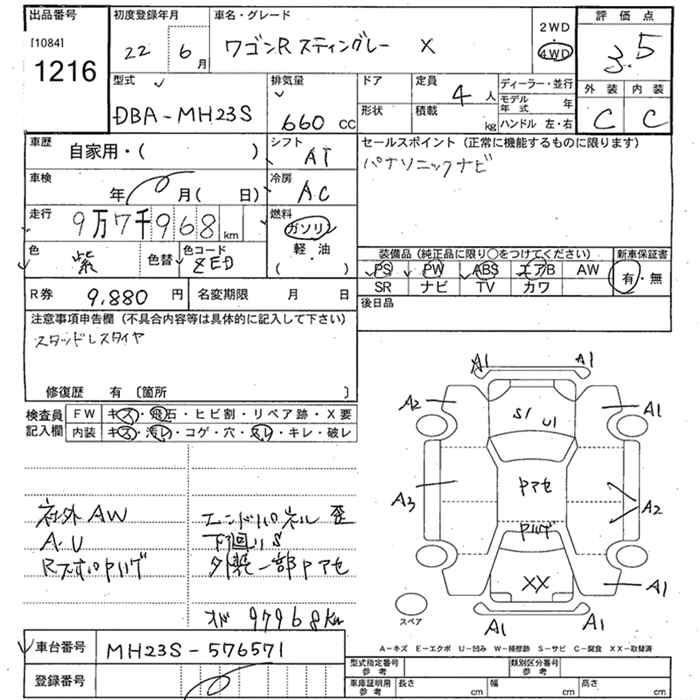 出品番号 初度登録年月 車名・グレード 2WD 評価点
[1084] 22 6月 ワゴンR スティングレー X 4WD 3.5
1216
型式 排気量 ドア 定員 4人 ディーラー・並行 外装 内装
DBA-MH23S 660cc 形状 積載 kg モデル年式 年 C C
ハンドル 左・右
車歴 シフト セールスポイント (正常に機能するものに限ります)
自家用・( ) AT パナソニックナビ
車検 冷房
年 月( 日) AC
走行 9万7千968km 燃料
ガソリン
軽・油
( )
色 紫 色替 色コード ZED
装備品(純正品に限り○をつけてください) 新車保証書
PS PW ABS エアB AW 有・無
SR ナビ TV カワ
R券 9,880円 名変期限 月 日 後日品
注意事項申告欄(不具合内容等は具体的に記入して下さい)
スタッドレスタイヤ
修復歴 有 〔箇所 〕
検査員 FW キズ・飛石・ヒビ割・リペア跡・X要
記入欄 内装 キズ・汚レ・コゲ・穴・スレ・キレ・破レ
社外AW エンドパネル歪
A・U 下廻りS
外装一部Pアセ
メーター97968km
A1 A1
A2 S1 U1 A1
A3 Pアセ A2
XX A1
A1 A1
スペア
A-キズ E-エクボ U-凹み W-補修跡 S-サビ C-腐食 XX-取替済
車台番号 MH23S-576571
登録番号
型式指定番号 参考 類別区分番号 参考
車庫証明用 参考 長さ cm 幅 cm 高さ cm